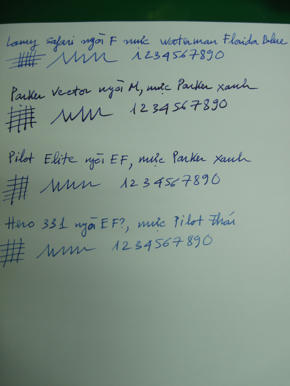 Lamy safari ngòi F mực Waterman Florida Blue
1234567890
Parker Vector ngòi M, mực Parker xanh
1234567890
Pilot Elite ngòi EF, mực Parker xanh
1234567890
Hero 331 ngòi EF?, mực Pilot Thái
1234567890